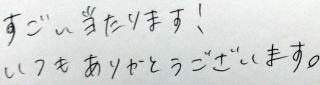 すごい当たります!
いつもありがとうございます。